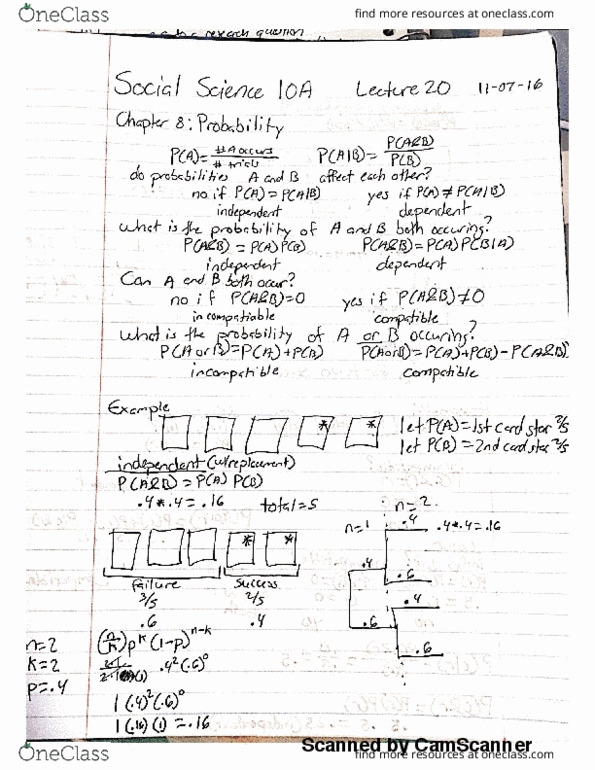 OneClass find more resources at oneclass.com
research question
Social Science 10A Lecture 20 11-07-16
Chapter 8: Probability
P(A) = # A occurs / # trials P(A|B) = P(A&B) / P(B)
do probabilities A and B affect each other?
no if P(A) = P(A|B) yes if P(A) ≠ P(A|B)
independent dependent
what is the probability of A and B both occuring?
P(A&B) = P(A) P(B) P(A&B) = P(A) P(B|A)
independent dependent
Can A and B both occur?
no if P(A&B) = 0 yes if P(A&B) ≠ 0
incompatiable compatible
what is the probability of A or B occuring?
P(A or B) = P(A) + P(B) P(A or B) = P(A) + P(B) - P(A&B)
incompatible compatible
Example
* * let P(A) = 1st card star 2/5
let P(B) = 2nd card star 2/5
independent (w/replacement)
P(A&B) = P(A) P(B)
.4 * .4 = .16 total = 5
n=1 n=2
.4 .4*.4=.16
* *
.4 .6
failure success
3/5 2/5
.6 .4
.6 .4
.6
n=2 (n/k) p^k (1-p)^n-k
k=2 .4² (.6)⁰
p=.4
1 (.4)² (.6)⁰
1 (.16) (1) = .16
Scanned by CamScanner
OneClass find more resources at oneclass.com